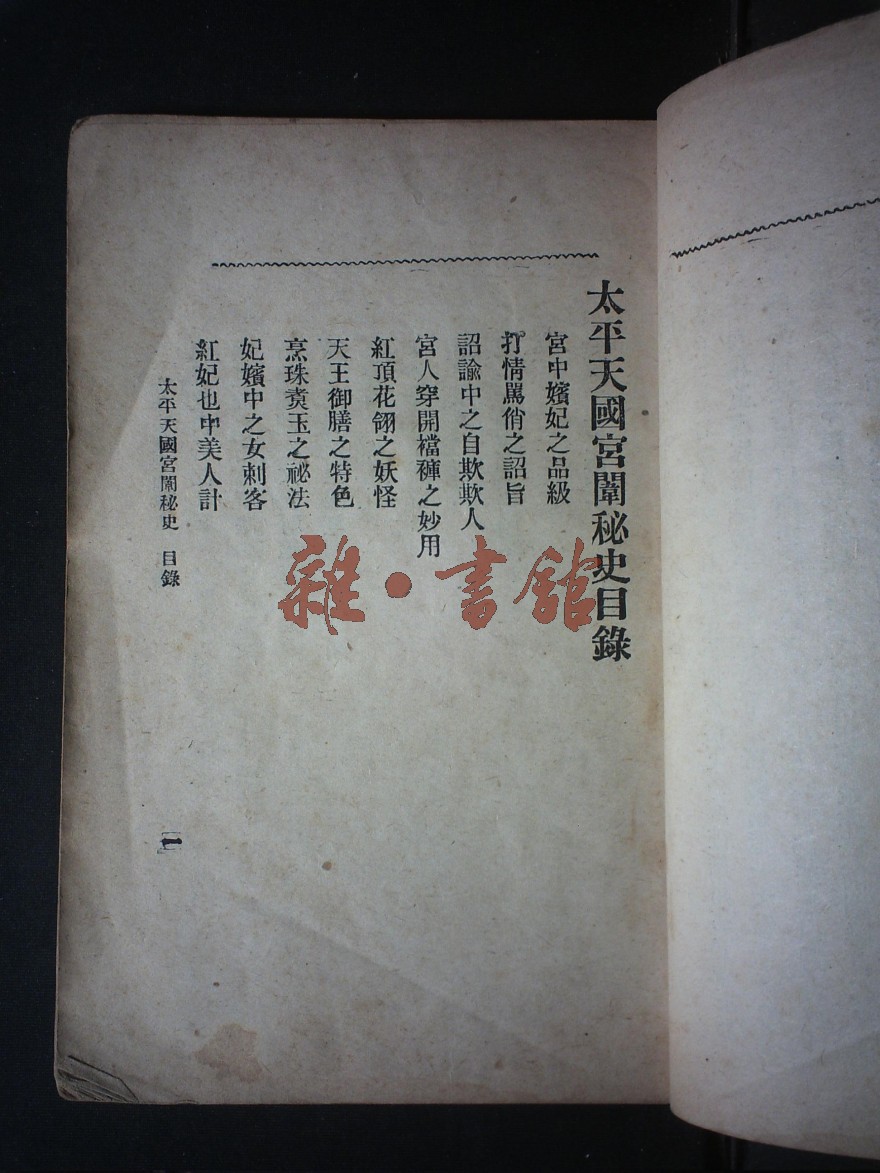 太平天國宮闈秘史目錄
宮中嬪妃之品級
打情罵俏之詔旨
詔諭中之自欺欺人
宮人穿開襠褲之妙用
紅頂花翎之妖怪
天王御膳之特色
烹珠煑玉之祕法
妃嬪中之女刺客
紅妃也中美人計
太平天國宮闈秘史 目錄
一
雜•書館